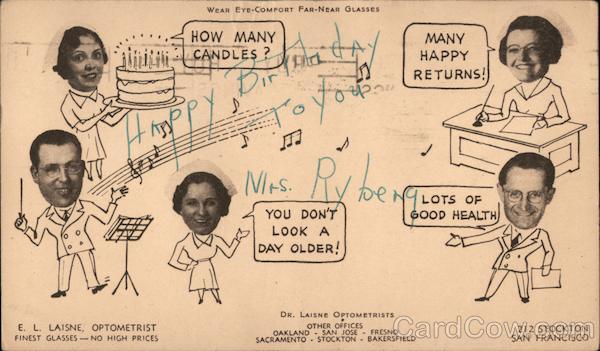 WEAR EYE-COMFORT FAR-NEAR GLASSES
HOW MANY
CANDLES?
MANY
HAPPY
RETURNS!
Happy Birthday
To you
Mrs. Ryberg
LOTS OF
GOOD HEALTH
YOU DON'T
LOOK A
DAY OLDER!
E. L. LAISNE, OPTOMETRIST
FINEST GLASSES — NO HIGH PRICES
DR. LAISNE OPTOMETRISTS
OTHER OFFICES
OAKLAND - SAN JOSE - FRESNO
SACRAMENTO - STOCKTON - BAKERSFIELD
212 STOCKTON
SAN FRANCISCO
CardCow.com